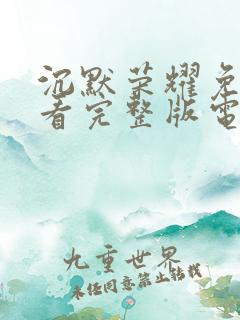 沉默荣耀免
看完整版電
九重世界
未经同意禁止转载